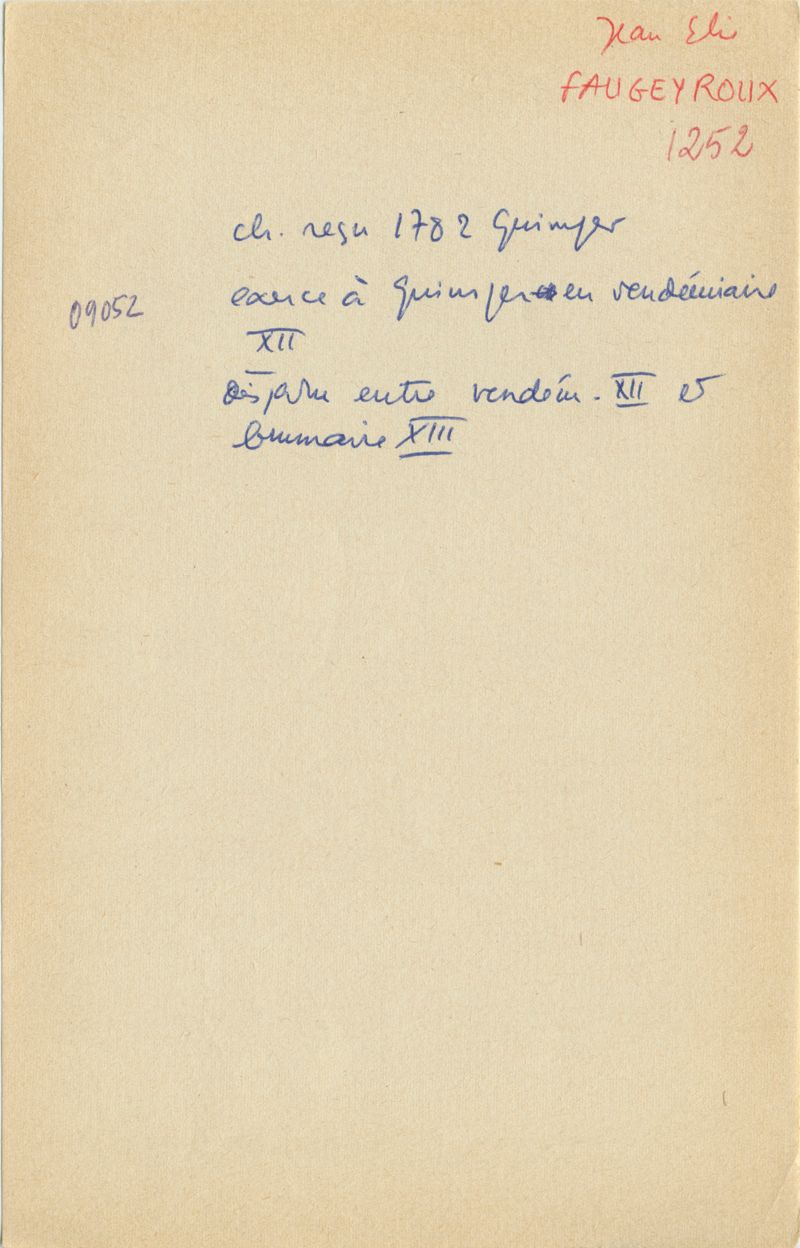 Jean Elie
FAUGEYROUX
1252
ch. reçu 1782 Quimper
09052
exerce à Quimper en vendémiaire
XII
disparu entre vendém. XII et
brumaire XIII